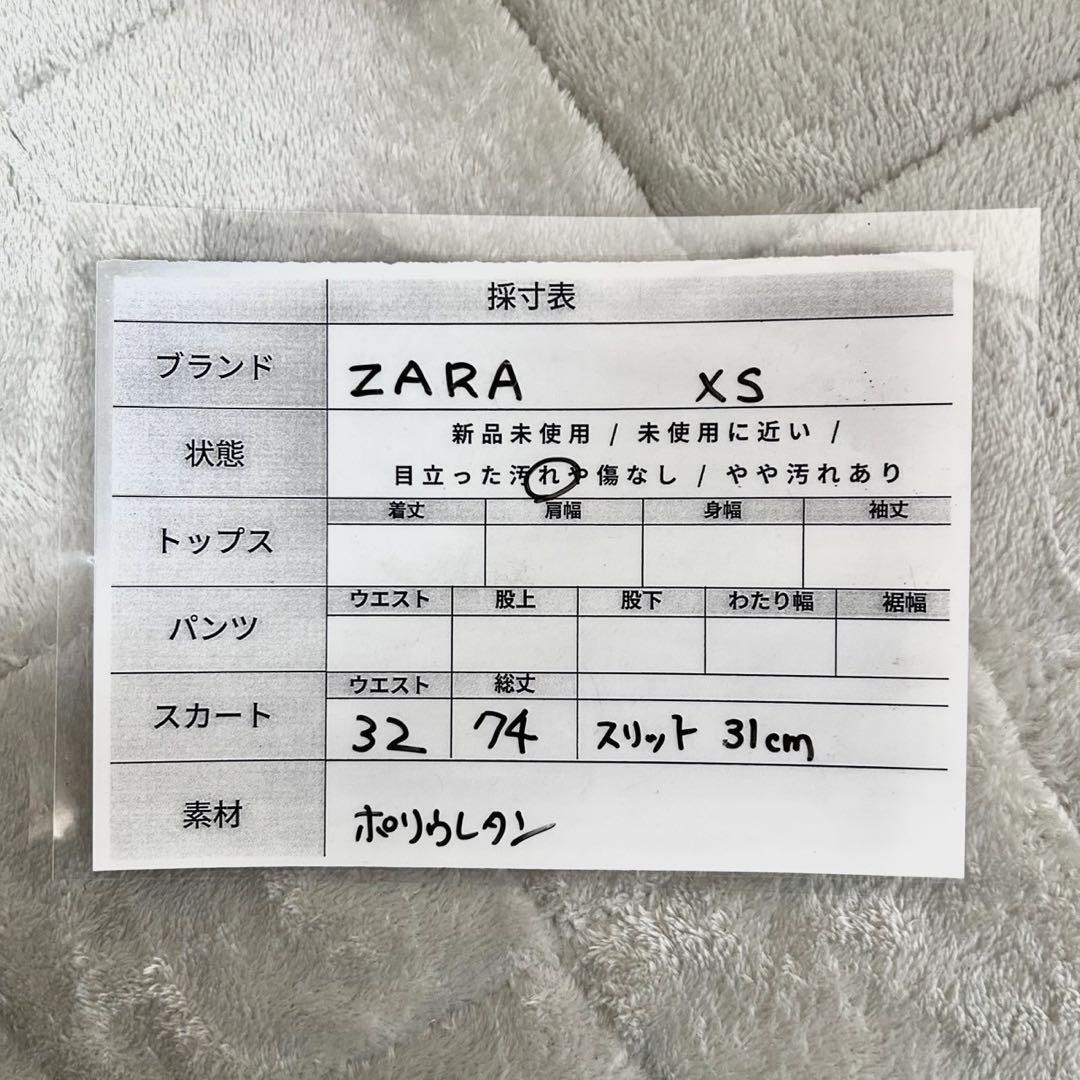 採寸表
ブランド ZARA XS
状態 新品未使用 / 未使用に近い /
目立った汚れや傷なし / やや汚れあり
トップス 着丈 肩幅 身幅 袖丈
パンツ ウエスト 股上 股下 わたり幅 裾幅
スカート ウエスト 総丈
32 74 スリット 31cm
素材 ポリウレタン